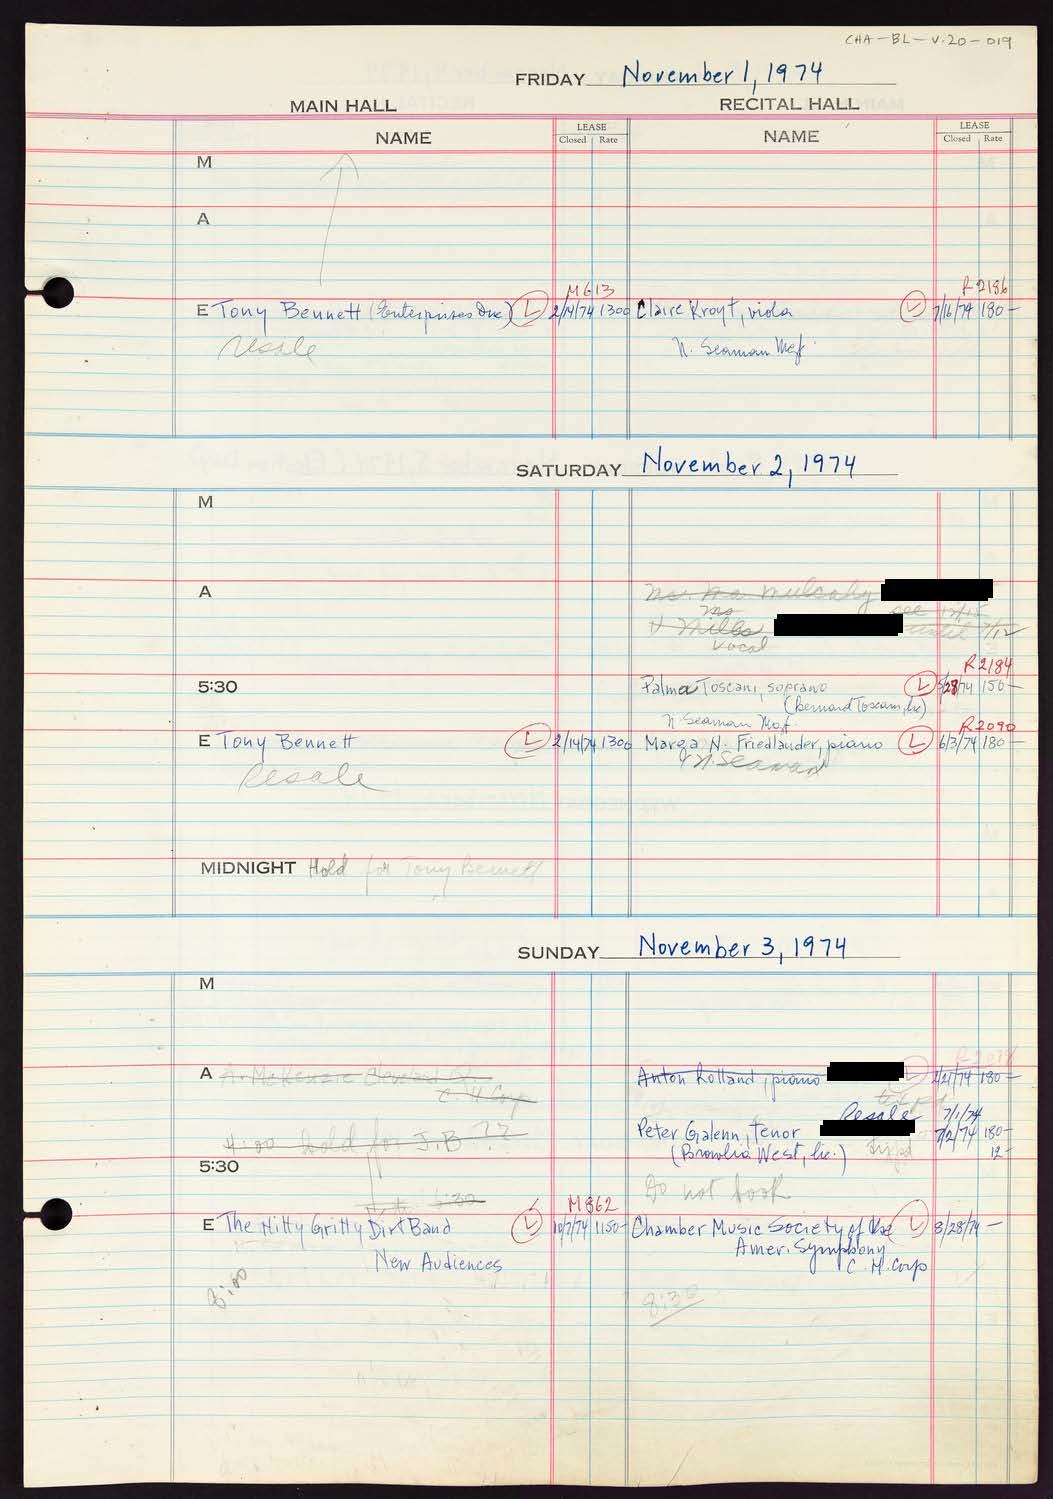 CHA-BL-V.20-019
FRIDAY November 1, 1974
MAIN HALL RECITAL HALL
NAME LEASE Closed Rate NAME LEASE Closed Rate
M
A
M613 R2186
E Tony Bennett (Enterprises Inc) L 2/14/74 1300 Claire Kroyt, viola L 7/16/74 180-
resale N. Seaman Mgt.
SATURDAY November 2, 1974
M
A Mulcahy
see
Mills until 7/12
vocal
R2184
5:30 Palma Toscani, soprano L 5/28/74 150-
(Bernard Toscani, Inc)
N Seaman Mgt. R2090
E Tony Bennett L 2/14/74 1300 Marga N. Friedlander, piano L 6/3/74 180-
Resale N Seaman
MIDNIGHT Hold for Tony Bennett
SUNDAY November 3, 1974
M
A A. McKenzie Cleveland Anton Rolland, piano 180-
C H Corp
Resale 7/1/74
4:00 hold for J.B ?? Peter Galenn, tenor 7/2/74 180-
(Brownlia West, Inc.) 12-
5:30
Do not book
6:30
M862
E The Nitty Gritty Dirt Band L 10/7/74 1150- Chamber Music Society of the L 8/28/74 -
Amer. Symphony
New Audiences C.H. Corp
8:00
8:30